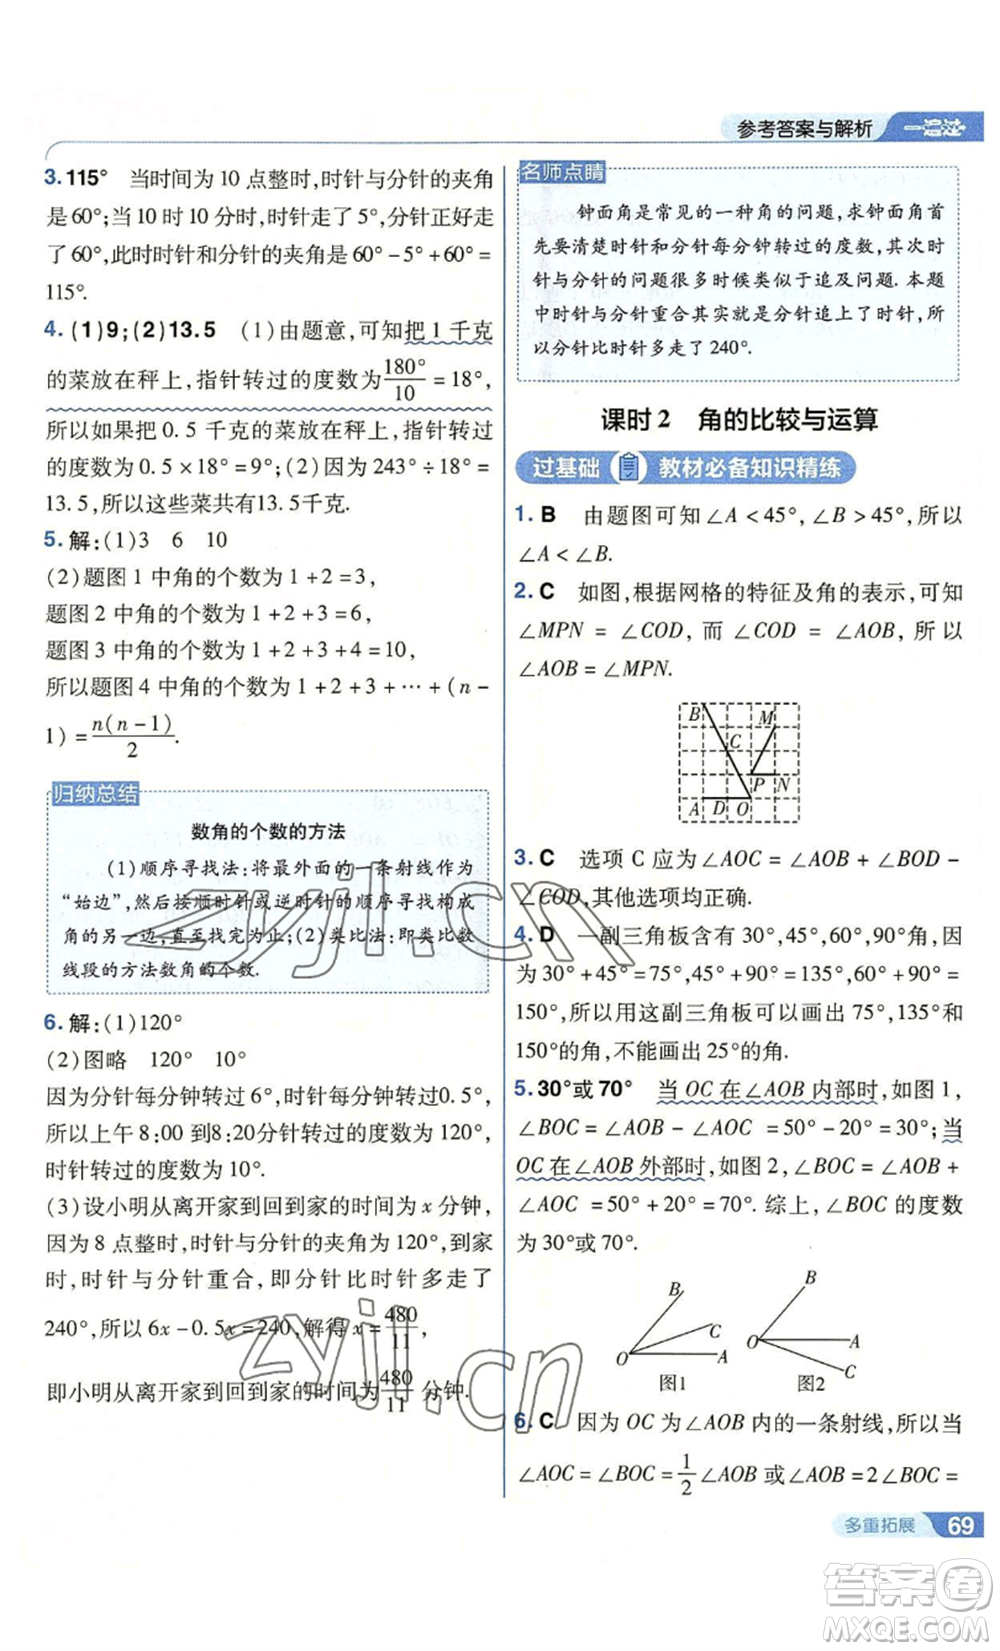 参考答案与解析 一遍过
3. 115° 当时间为 10 点整时,时针与分针的夹角
是 60°;当 10 时 10 分时,时针走了 5°,分针正好走
了 60°,此时时针和分针的夹角是 60°-5°+60°=
115°.
4. (1)9;(2)13.5 (1)由题意,可知把 1 千克
的菜放在秤上,指针转过的度数为180°/10=18°,
所以如果把 0.5 千克的菜放在秤上,指针转过
的度数为 0.5×18°=9°;(2)因为 243°÷18°=
13.5,所以这些菜共有13.5千克.
5. 解:(1)3 6 10
(2)题图 1 中角的个数为 1+2=3,
题图 2 中角的个数为 1+2+3=6,
题图 3 中角的个数为 1+2+3+4=10,
所以题图 4 中角的个数为 1+2+3+…+(n-
1)=n(n-1)/2.
归纳总结
数角的个数的方法
(1)顺序寻找法:将最外面的一条射线作为
“始边”,然后按顺时针或逆时针的顺序寻找构成
角的另一边,直至找完为止;(2)类比法:即类比数
线段的方法数角的个数.
6. 解:(1)120°
(2)图略 120° 10°
因为分针每分钟转过 6°,时针每分钟转过0.5°,
所以上午 8:00 到8:20分针转过的度数为 120°,
时针转过的度数为 10°.
(3)设小明从离开家到回到家的时间为 x 分钟,
因为 8 点整时,时针与分针的夹角为 120°,到家
时,时针与分针重合,即分针比时针多走了
240°,所以 6x-0.5x=240,解得 x=480/11,
即小明从离开家到回到家的时间为480/11分钟.
名师点睛
钟面角是常见的一种角的问题,求钟面角首
先要清楚时针和分针每分钟转过的度数,其次时
针与分针的问题很多时候类似于追及问题.本题
中时针与分针重合其实就是分针追上了时针,所
以分针比时针多走了 240°.
课时 2 角的比较与运算
过基础 教材必备知识精练
1. B 由题图可知∠A<45°,∠B>45°,所以
∠A<∠B.
2. C 如图,根据网格的特征及角的表示,可知
∠MPN=∠COD,而∠COD=∠AOB,所以
∠AOB=∠MPN.
B M
C
P N
A D O
3. C 选项 C 应为∠AOC=∠AOB+∠BOD-
∠COD,其他选项均正确.
4. D 一副三角板含有 30°,45°,60°,90°角,因
为 30°+45°=75°,45°+90°=135°,60°+90°=
150°,所以用这副三角板可以画出 75°,135°和
150°的角,不能画出 25°的角.
5. 30°或 70° 当 OC 在∠AOB 内部时,如图 1,
∠BOC=∠AOB-∠AOC=50°-20°=30°;当
OC在∠AOB外部时,如图 2,∠BOC=∠AOB+
∠AOC=50°+20°=70°.综上,∠BOC的度数
为 30°或 70°.
B
C
O A
图1
B
O A
C
图2
6. C 因为 OC 为∠AOB 内的一条射线,所以当
∠AOC=∠BOC=1/2∠AOB 或∠AOB=2∠BOC=
多重拓展 69
zyjl.cn
zyjl.cn
答案圈
MXQE.COM